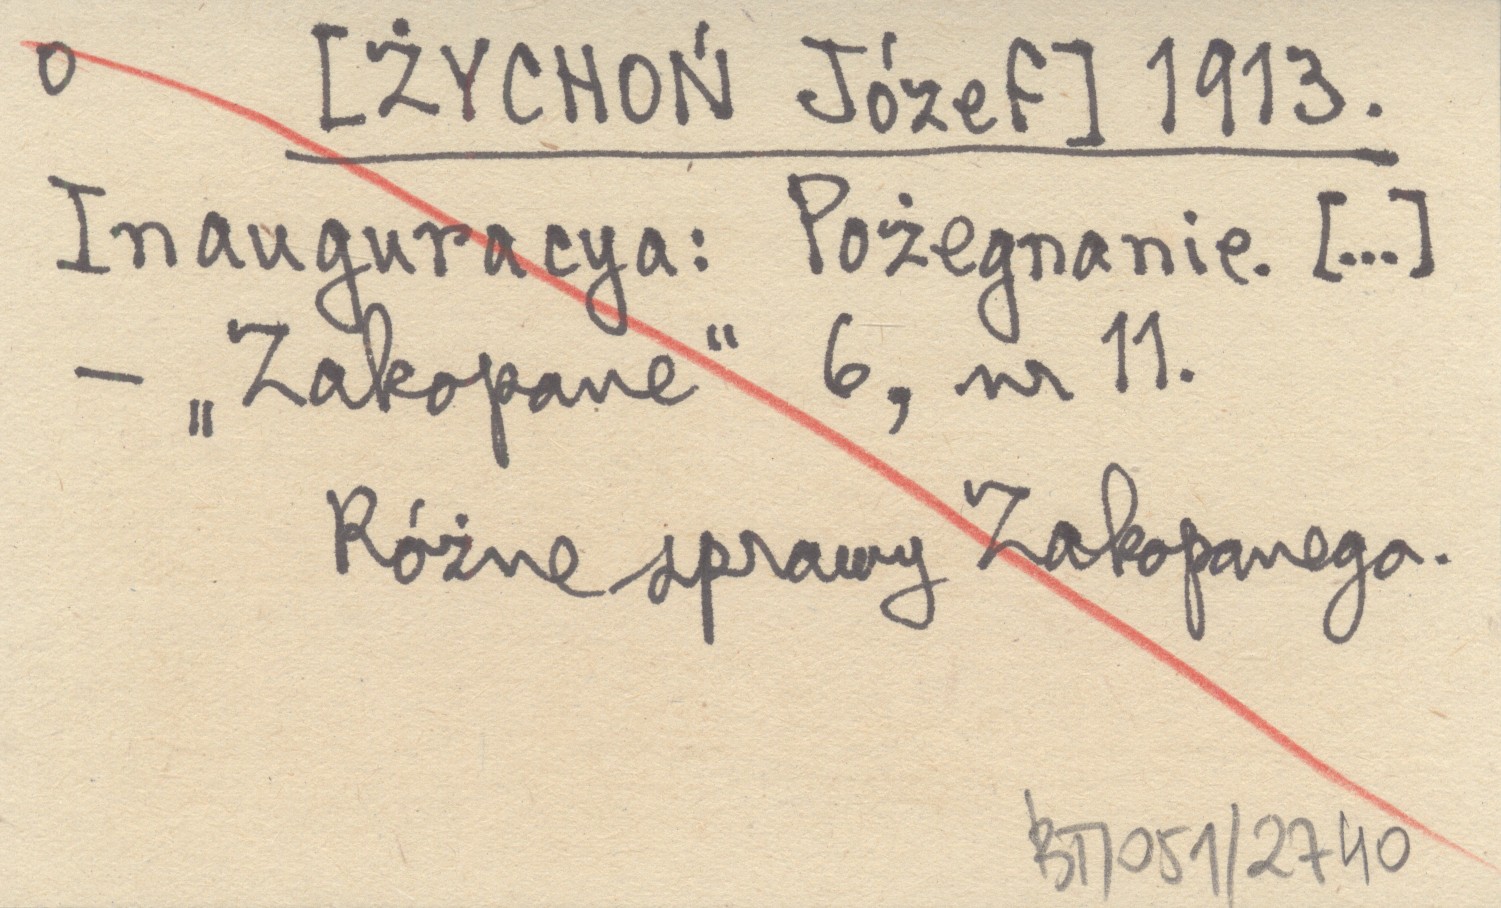 o [ŻYCHOŃ Józef] 1913.
Inauguracya: Pożegnanie. [...]
– „Zakopane" 6, nr 11.
Różne sprawy Zakopanego.
BT/051/2740